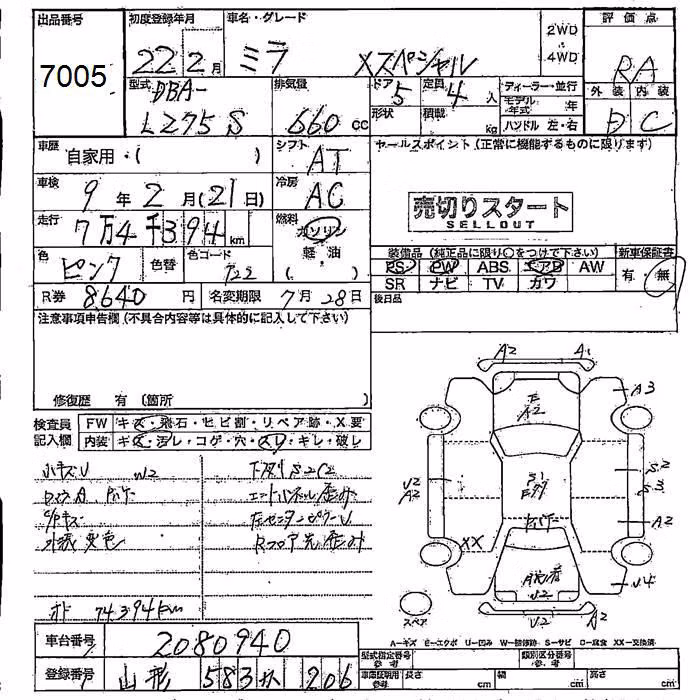 出品番号 初度登録年月 車名・グレード 評価点
7005 22 2月 ミラ Xスペシャル 2WD ・ 4WD RA
型式 DBA- 排気量 ドア 定員 ディーラー・並行 外装 内装
L275S 660cc 5 4人 モデル年式 年 D C
形状 積載 kg ハンドル 左・右
車歴 自家用・( ) シフト AT セールスポイント(正常に機能するものに限ります)
車検 9年2月(21日) 冷房 AC 売切りスタート
SELLOUT
走行 7万4千394km 燃料 ガソリン
軽油
( )
色 ピンク 色替 色コード
装備品(純正品に限り○をつけて下さい) 新車保証書
PS PW ABS エアB AW 有・無
SR ナビ TV カワ
R券 8640円 名変期限 7月28日 後日品
注意事項申告欄(不具合内容等は具体的に記入して下さい)
修復歴 有(箇所 )
検査員記入欄 FW キズ・飛石・ヒビ割・リペア跡・X要
内装 キズ・汚レ・コゲ・穴・スレ・キレ・破レ
小キズU W2 下廻りS2C2
外装変色
オド 74394km
A2 A1
A2 A3
U2 A2
S2
S3
A2
XX
U4
U2
U2 A2
スペア
A-キズ E-エクボ U-凹み W-補修跡 S-サビ C-腐食 XX-交換済
車台番号 2080940 型式指定番号 参考 類別区分番号 参考
登録番号 山形 583 206 車庫証明用 参考 長さ cm 幅 cm 高さ cm